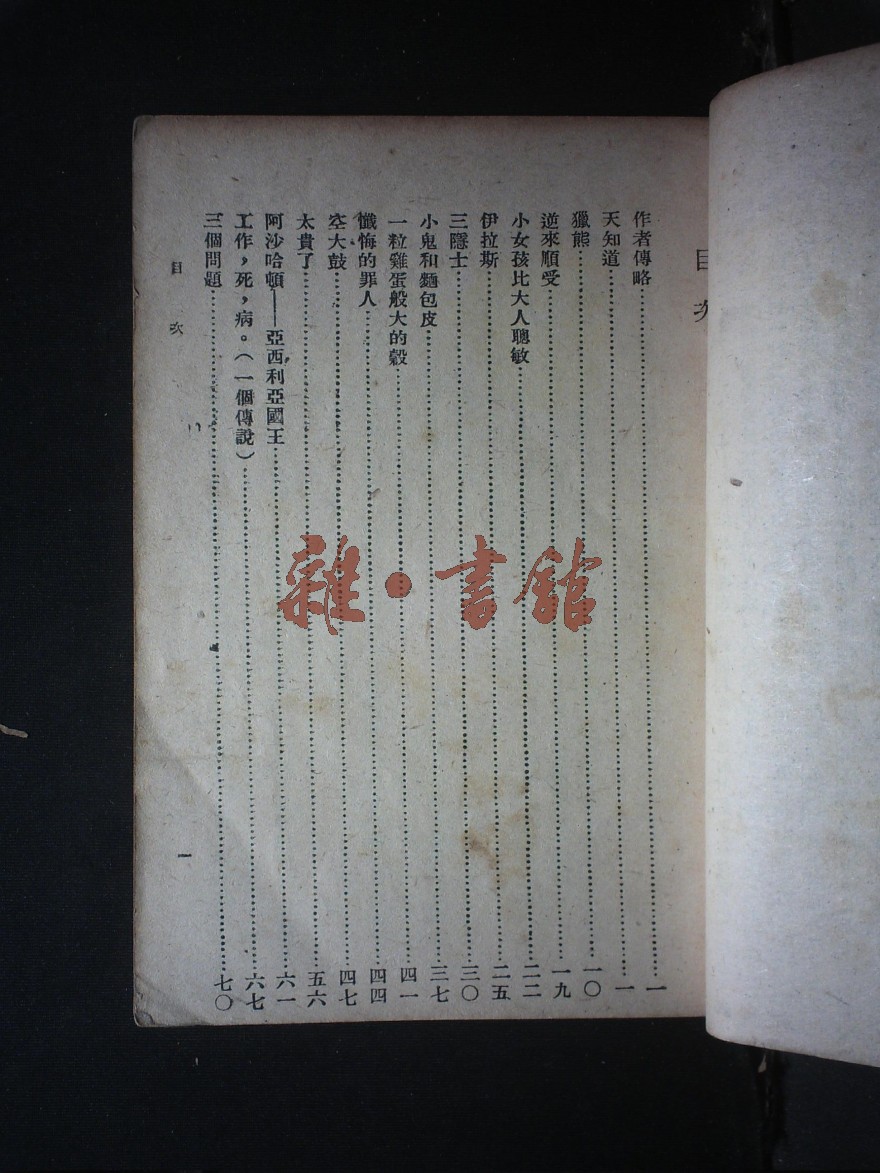 目次
作者傳略……一
天知道……一
獵熊……一〇
逆來順受……一九
小女孩比大人聰敏……二二
伊拉斯……二五
三隱士……三〇
小鬼和麵包皮……三七
一粒雞蛋般大的穀……四一
懺悔的罪人……四四
空大鼓……四七
太貴了……五六
阿沙哈頓——亞西利亞國王……六一
工作，死，病。（一個傳說）……六七
三個問題……七〇
目次
一
雜·書館